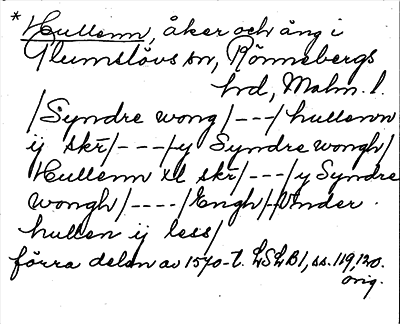 * Hullenn, åker och äng i
Glumslövs sn, Rönnebergs
hd, Malm. l.
/Syndre wong/---/hullenn
ij skr/---/y Syndre wongh/
Hullenn xl skr/---/y Syndre
wongh/----/Engh/Vnder
hullen ij less/
förra delen av 1570-t. LSLB 1, ss. 119, 120.
orig.